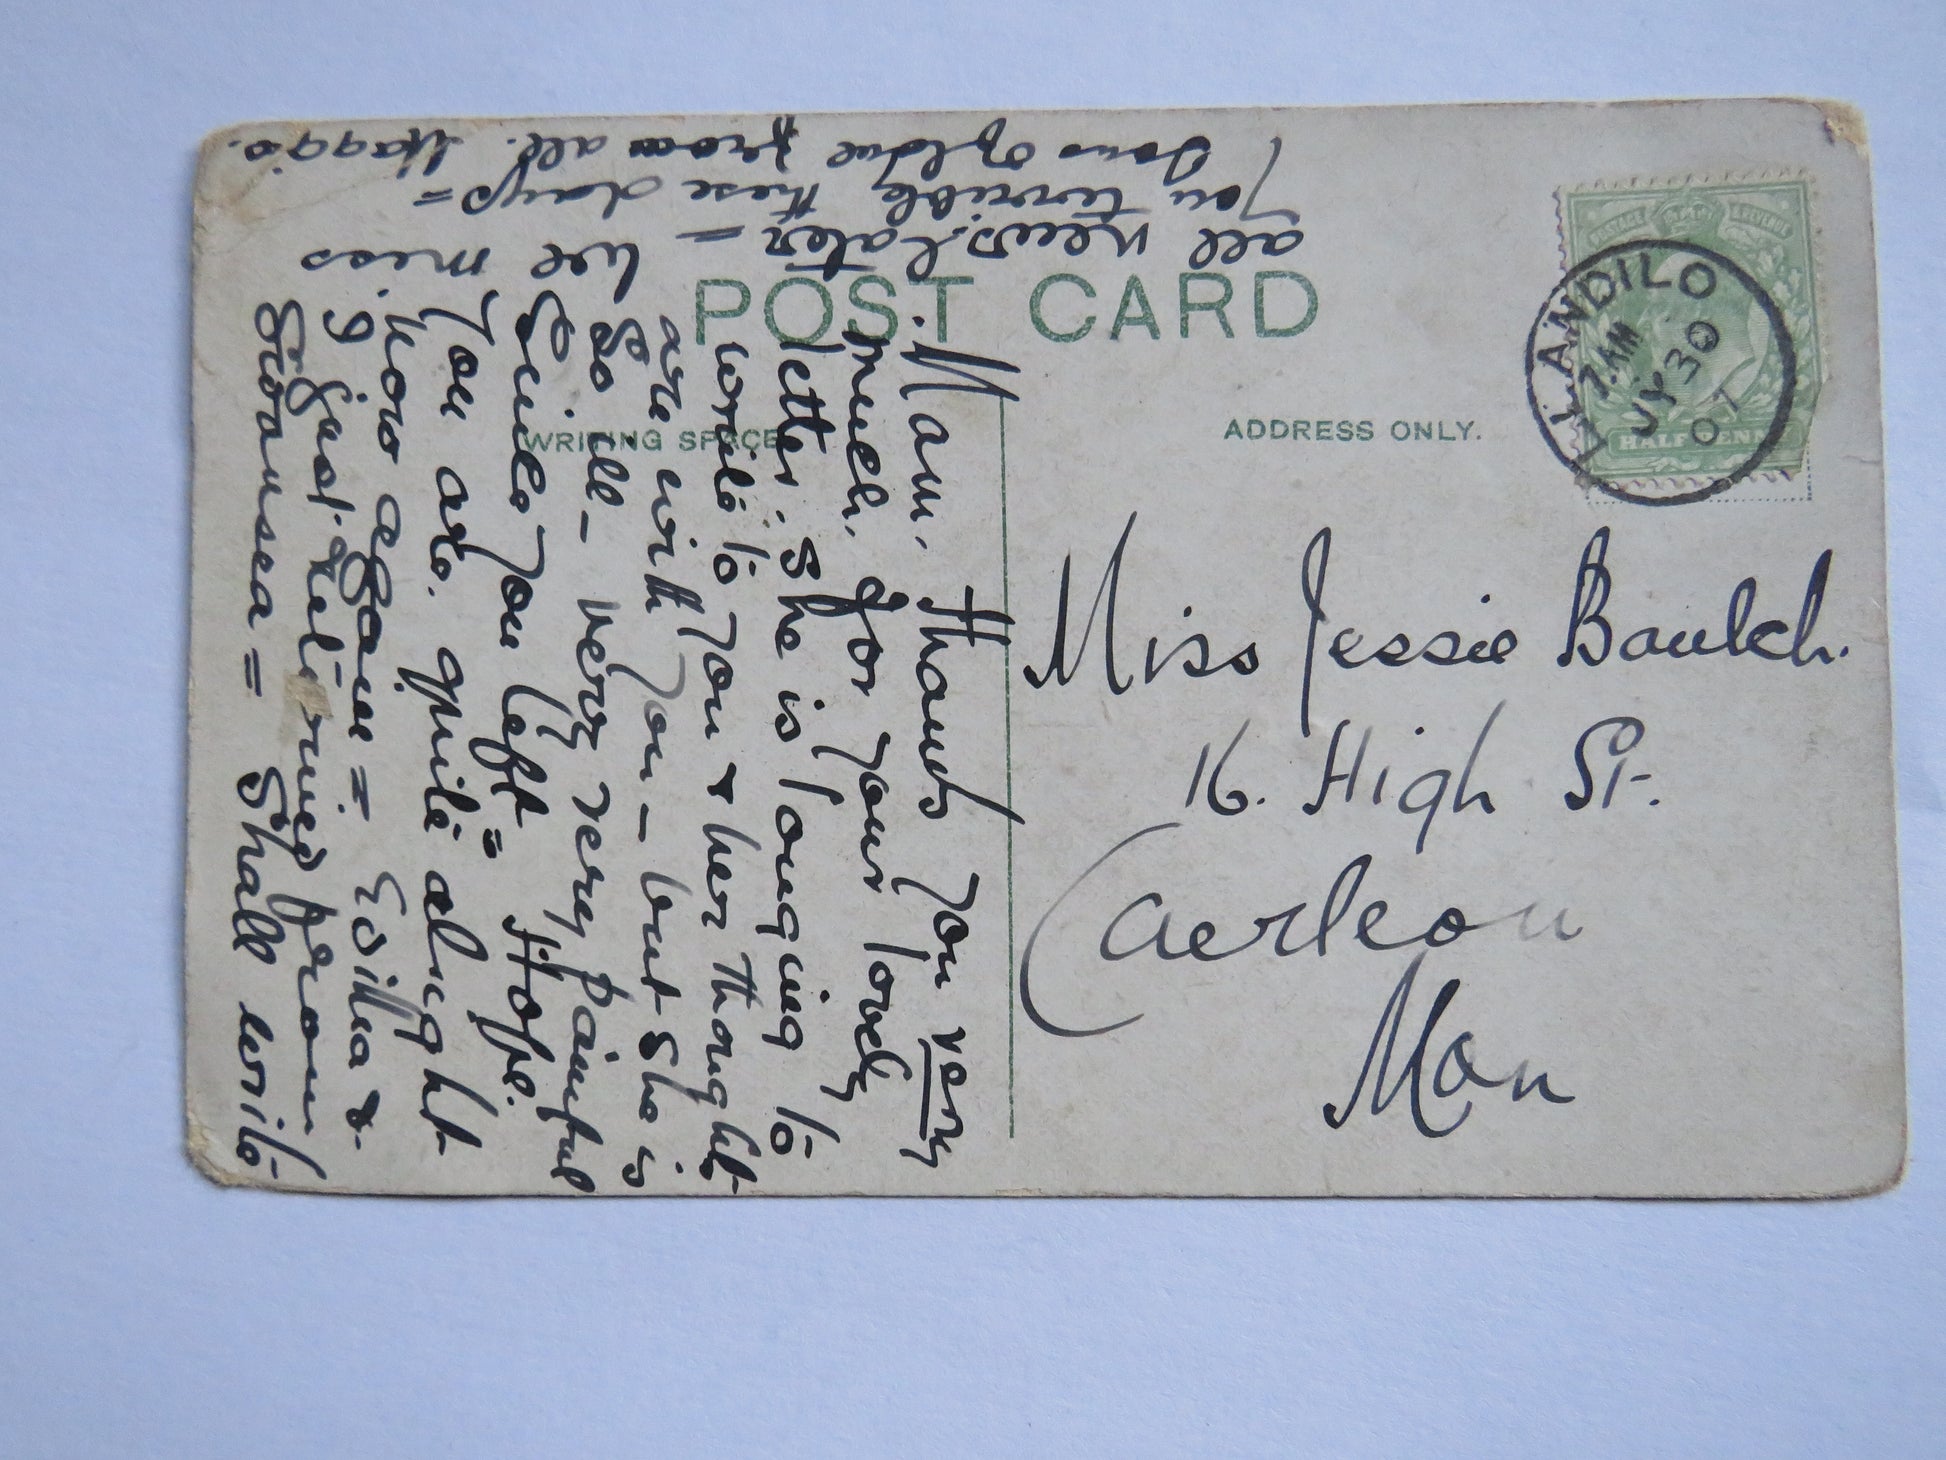 POST CARD
WRITING SPACE
ADDRESS ONLY.
POSTAGE & REVENUE
HALFPENNY
LLANDILO
7. AM
JY 30
07
Miss Jessie Baulch.
16. High St.
Caerleon
Mon
Mam. thanks you very
much. for your lovely
letter. She is longing to
write to you & her thoughts
are with you - but she is
so ill - very very painful
since you left = Hope.
you are. quite alright
now again = Edith &
I just returned from
Swansea = Shall write
all news. later = We miss
you terrible these days =
from all. Maggie.